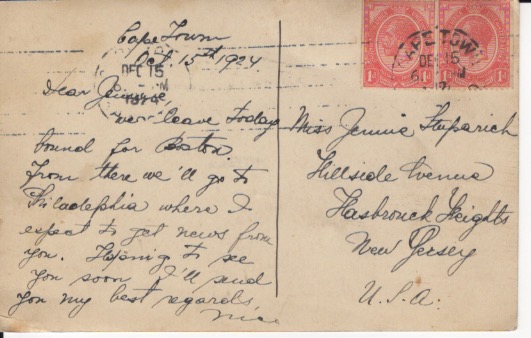 Cape Town
Oct 15th 1924
Dear Jennie,
we leave today
bound for Boston
From there we'll go to
Philadelphia where I
expect to get news from
you. Hoping to see
you soon I'll send
you my best regards,
DEC 15
1924
CAPE TOWN
DEC 15
6 PM
1d 1d
Miss Jennie
Hillside Avenue
Hasbrouck Heights
New Jersey
U.S.A.